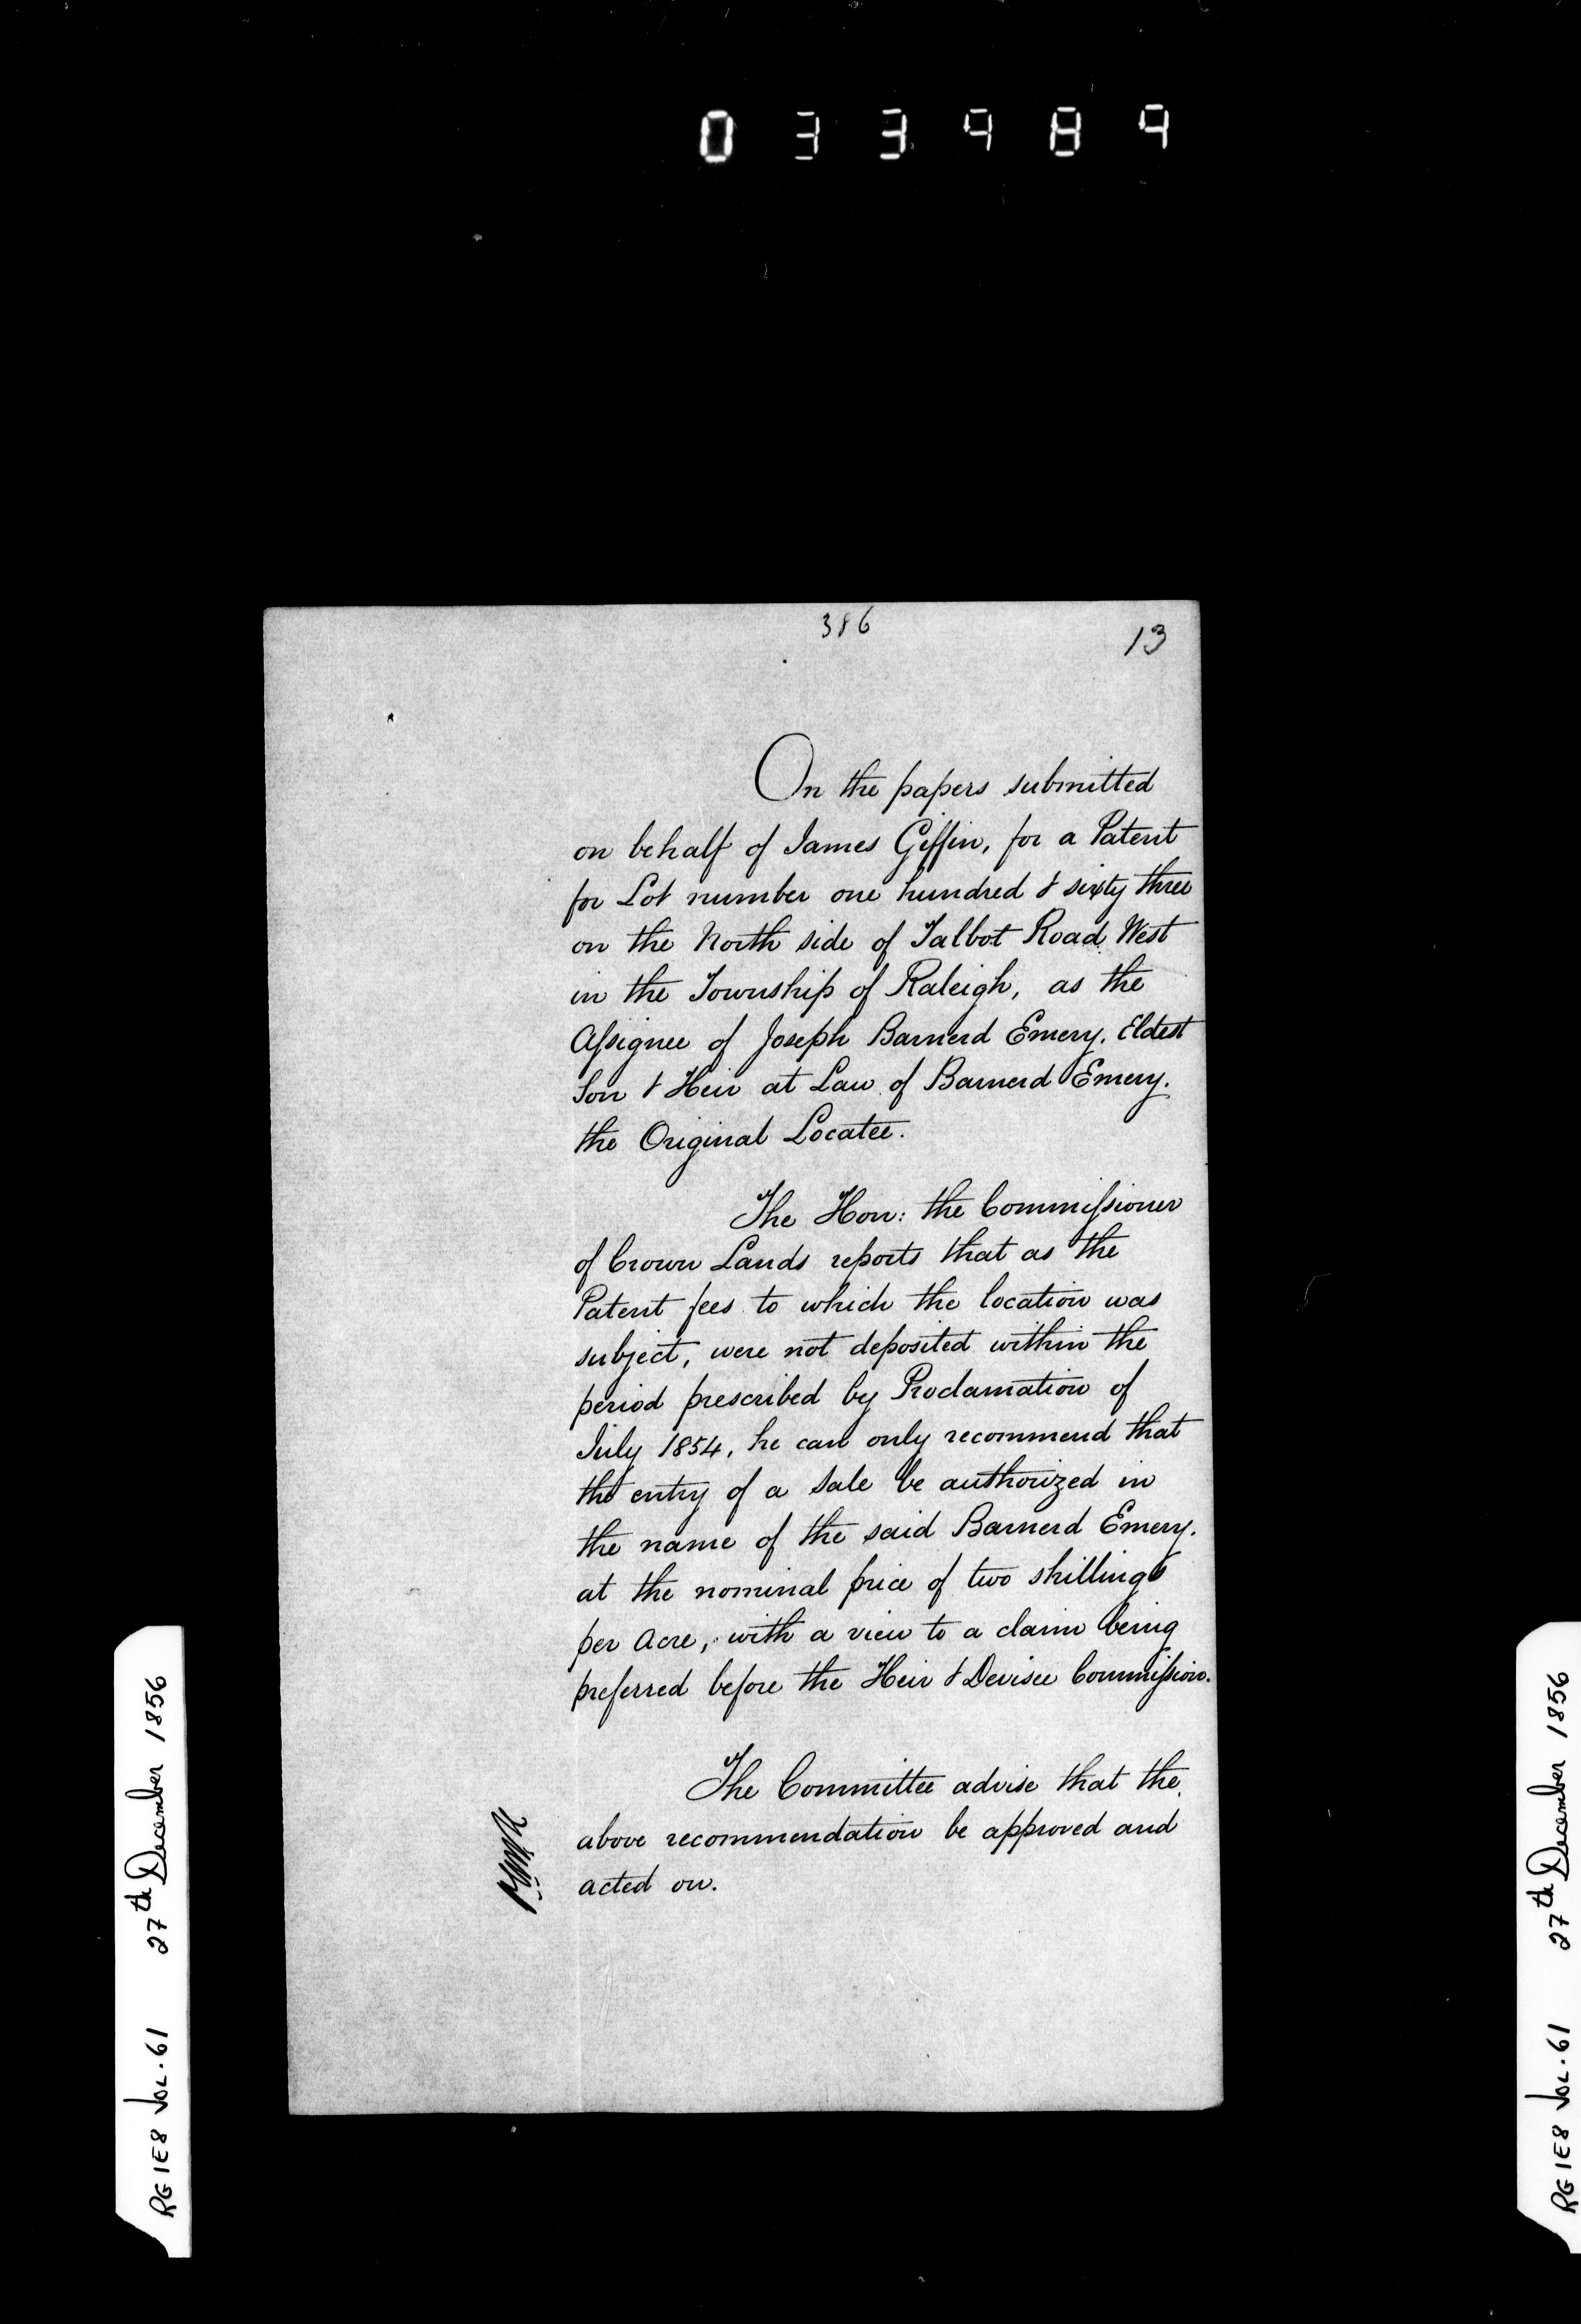 033989
386
13
On the papers submitted
on behalf of James Giffin, for a Patent
for Lot number one hundred & sixty three
on the North side of Talbot Road West
in the Township of Raleigh, as the
Assignee of Joseph Barnerd Emery. Eldest
Son & Heir at Law of Barnerd Emery.
the Original Locatee.
The Hon: the Commissioner
of Crown Lands reports that as the
Patent fees to which the location was
subject, were not deposited within the
period prescribed by Proclamation of
July 1854, he can only recommend that
the entry of a Sale be authorized in
the name of the said Barnerd Emery.
at the nominal price of two shillings
per Acre, with a view to a claim being
preferred before the Heir & Devisee Commission.
The Committee advise that the
above recommendation be approved and
acted on.
RG 1E8 VOL.61 27th December 1856
RG 1E8 VOL.61 27th December 1856